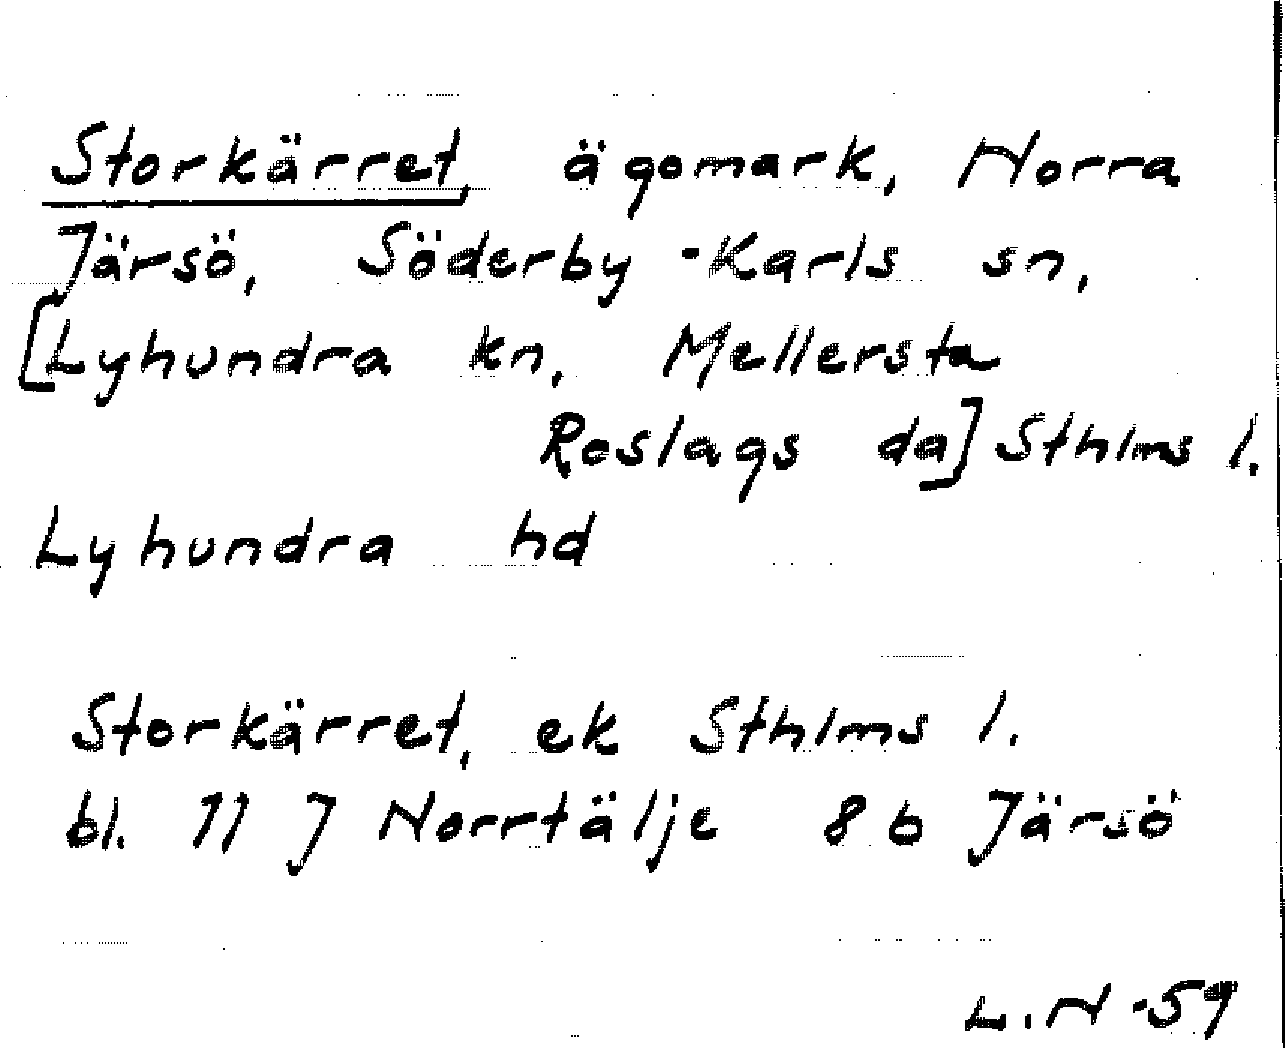 Storkärret, ägomark, Norra
Järsö, Söderby-Karls sn,
[Lyhundra kn, Mellersta
Roslags da] Sthlms l.
Lyhundra hd
Storkärret, ek Sthlms l.
bl. 11 J Norrtälje 8 b Järsö
L.N -59